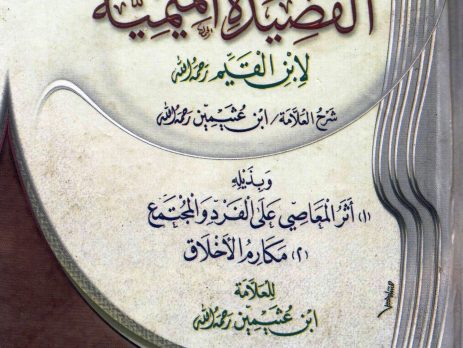 القصيدة الميمية
لابن القيم رحمه الله
شرح العلامة/ ابن عثيمين رحمه الله
وبذيله
(١) أثر المعاصي على الفرد والمجتمع
(٢) مكارم الأخلاق
للعلامة
ابن عثيمين رحمه الله